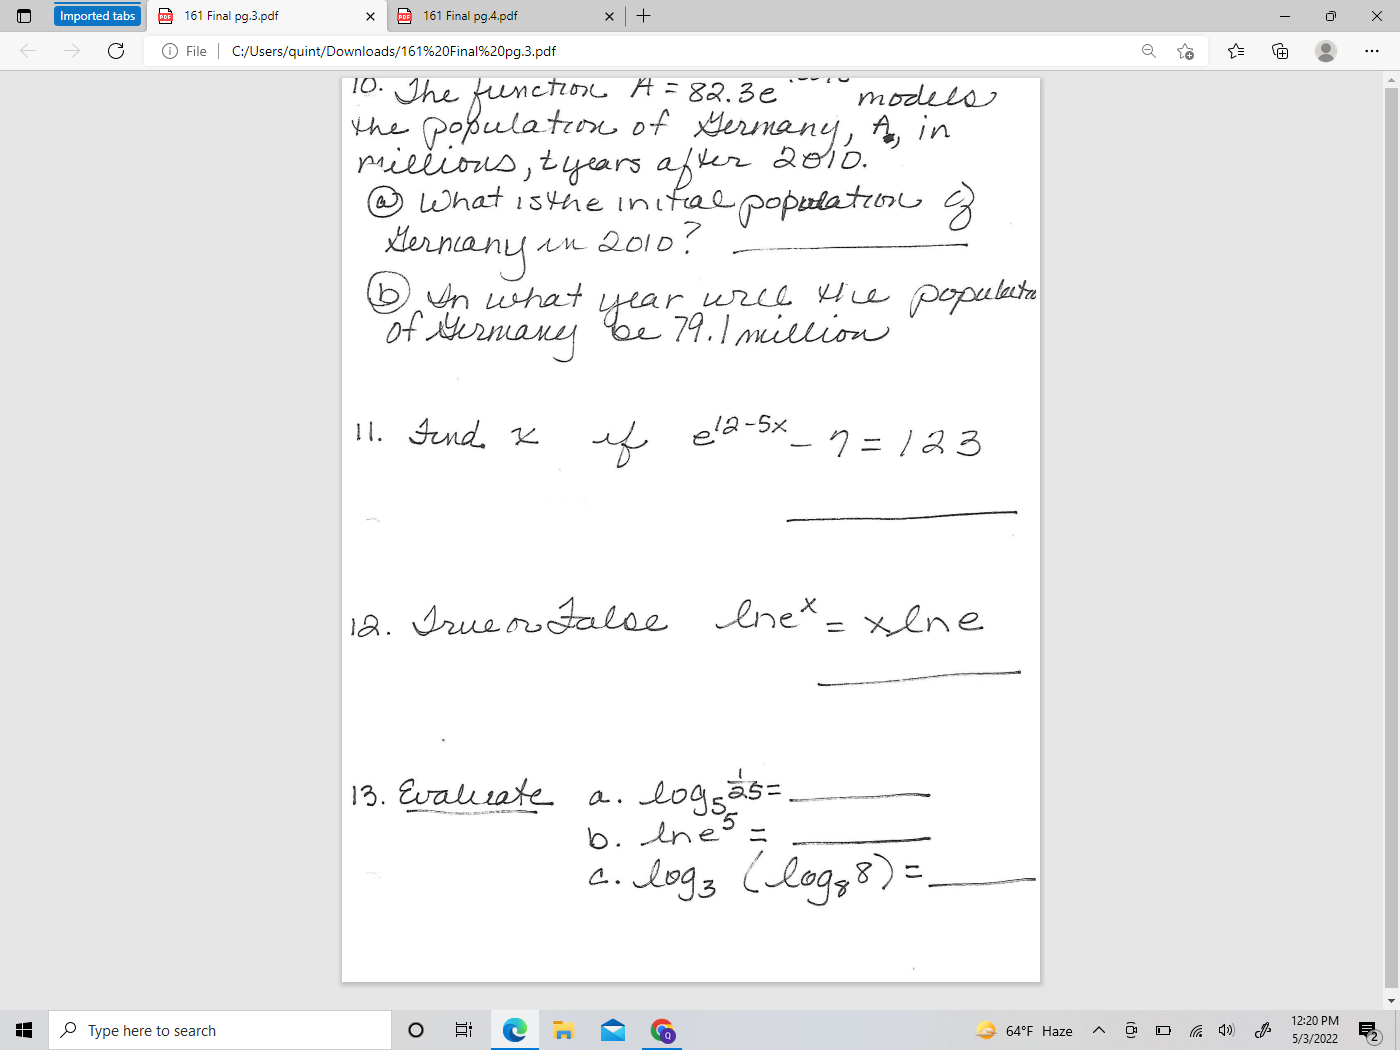 Imported tabs
161 Final pg.3.pdf
161 Final pg.4.pdf
File
C:/Users/quint/Downloads/161%20Final%20pg.3.pdf
10. The function A = 82.3e models
the population of Germany, A, in
millions, t years after 2010.
a What is the initial population of
Germany in 2010?
b In what year will the populatio
of Germany be 79.1 million
11. Find x if e^12-5x - 7 = 123
12. True or False ln e^x = x ln e
13. Evaluate a. log5 1/25 =
b. ln e^5 =
c. log3 (log8 8) =
Type here to search
64°F Haze
12:20 PM
5/3/2022
2